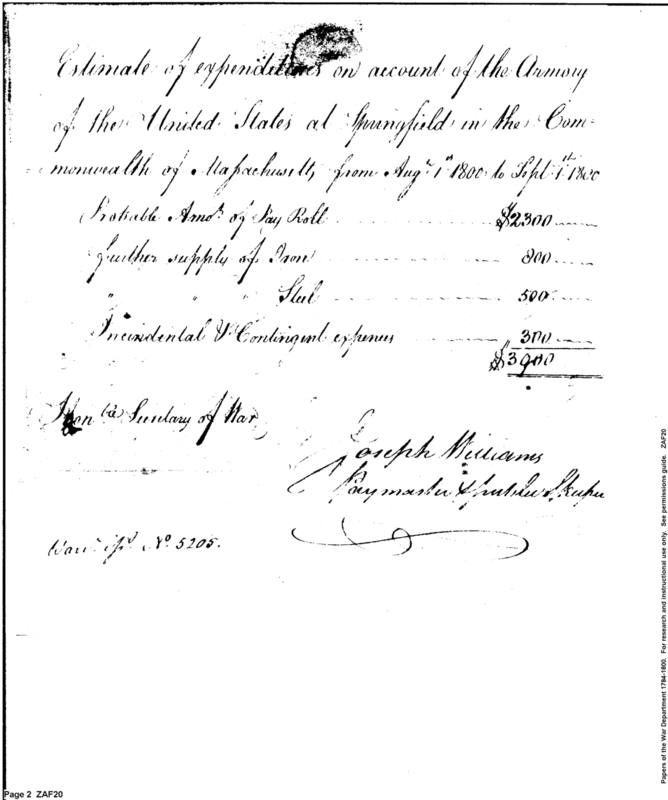 Estimate of expenditures on account of the Armory
of the United States at Springfield in the Com=
=monwealth of Massachusetts from Augt 1st 1800 to Sept 1st 1800
Probable Amot. of Pay Roll $2300
further supply of Iron 800
" " " Steel 500
Incidental & Contingent expenses 300
$3900
Honble Secretary of War
Joseph Williams
Paymaster &
No. 5205.
Page 2 ZAF20
Papers of the War Department 1784-1800. For research and instructional use only. See permissions guide. ZAF20